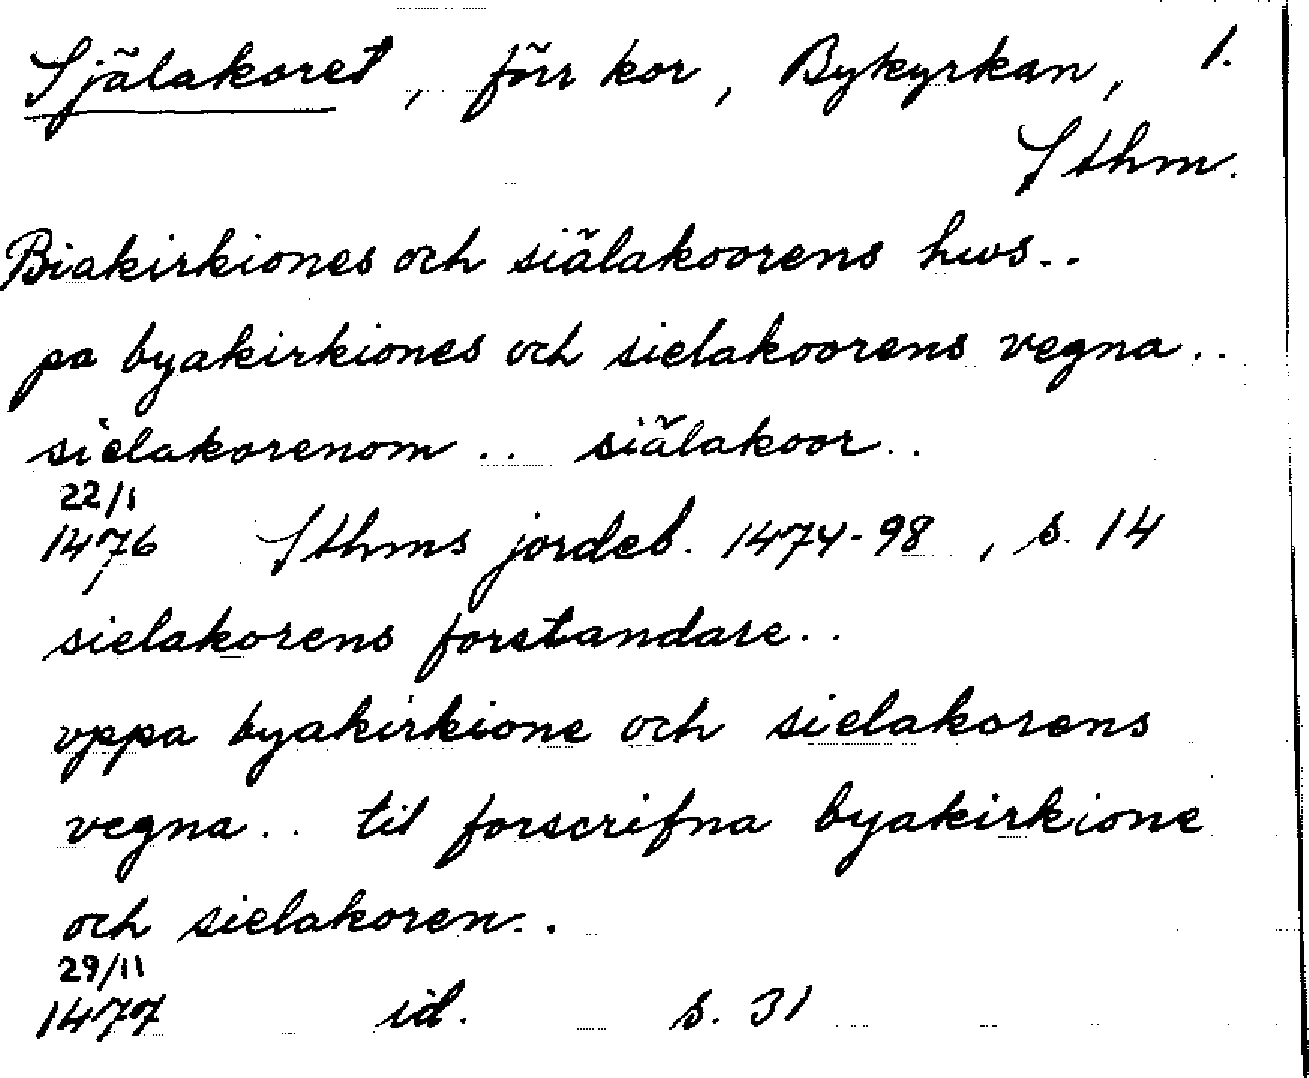 Själakoret, förr kor, Bykyrkan, 1.
Sthm.
Biakirkiones och siälakoorens hws..
pa byakirkiones och sielakoorens vegna..
sielakorenom .. siälakoor..
22/1
1476 Sthms jordeb. 1474-98, s. 14
sielakorens forstandare..
vppa byakirkione och sielakorens
vegna.. til forscrifna byakirkione
och sielakoren..
29/11
1477 id. s. 31